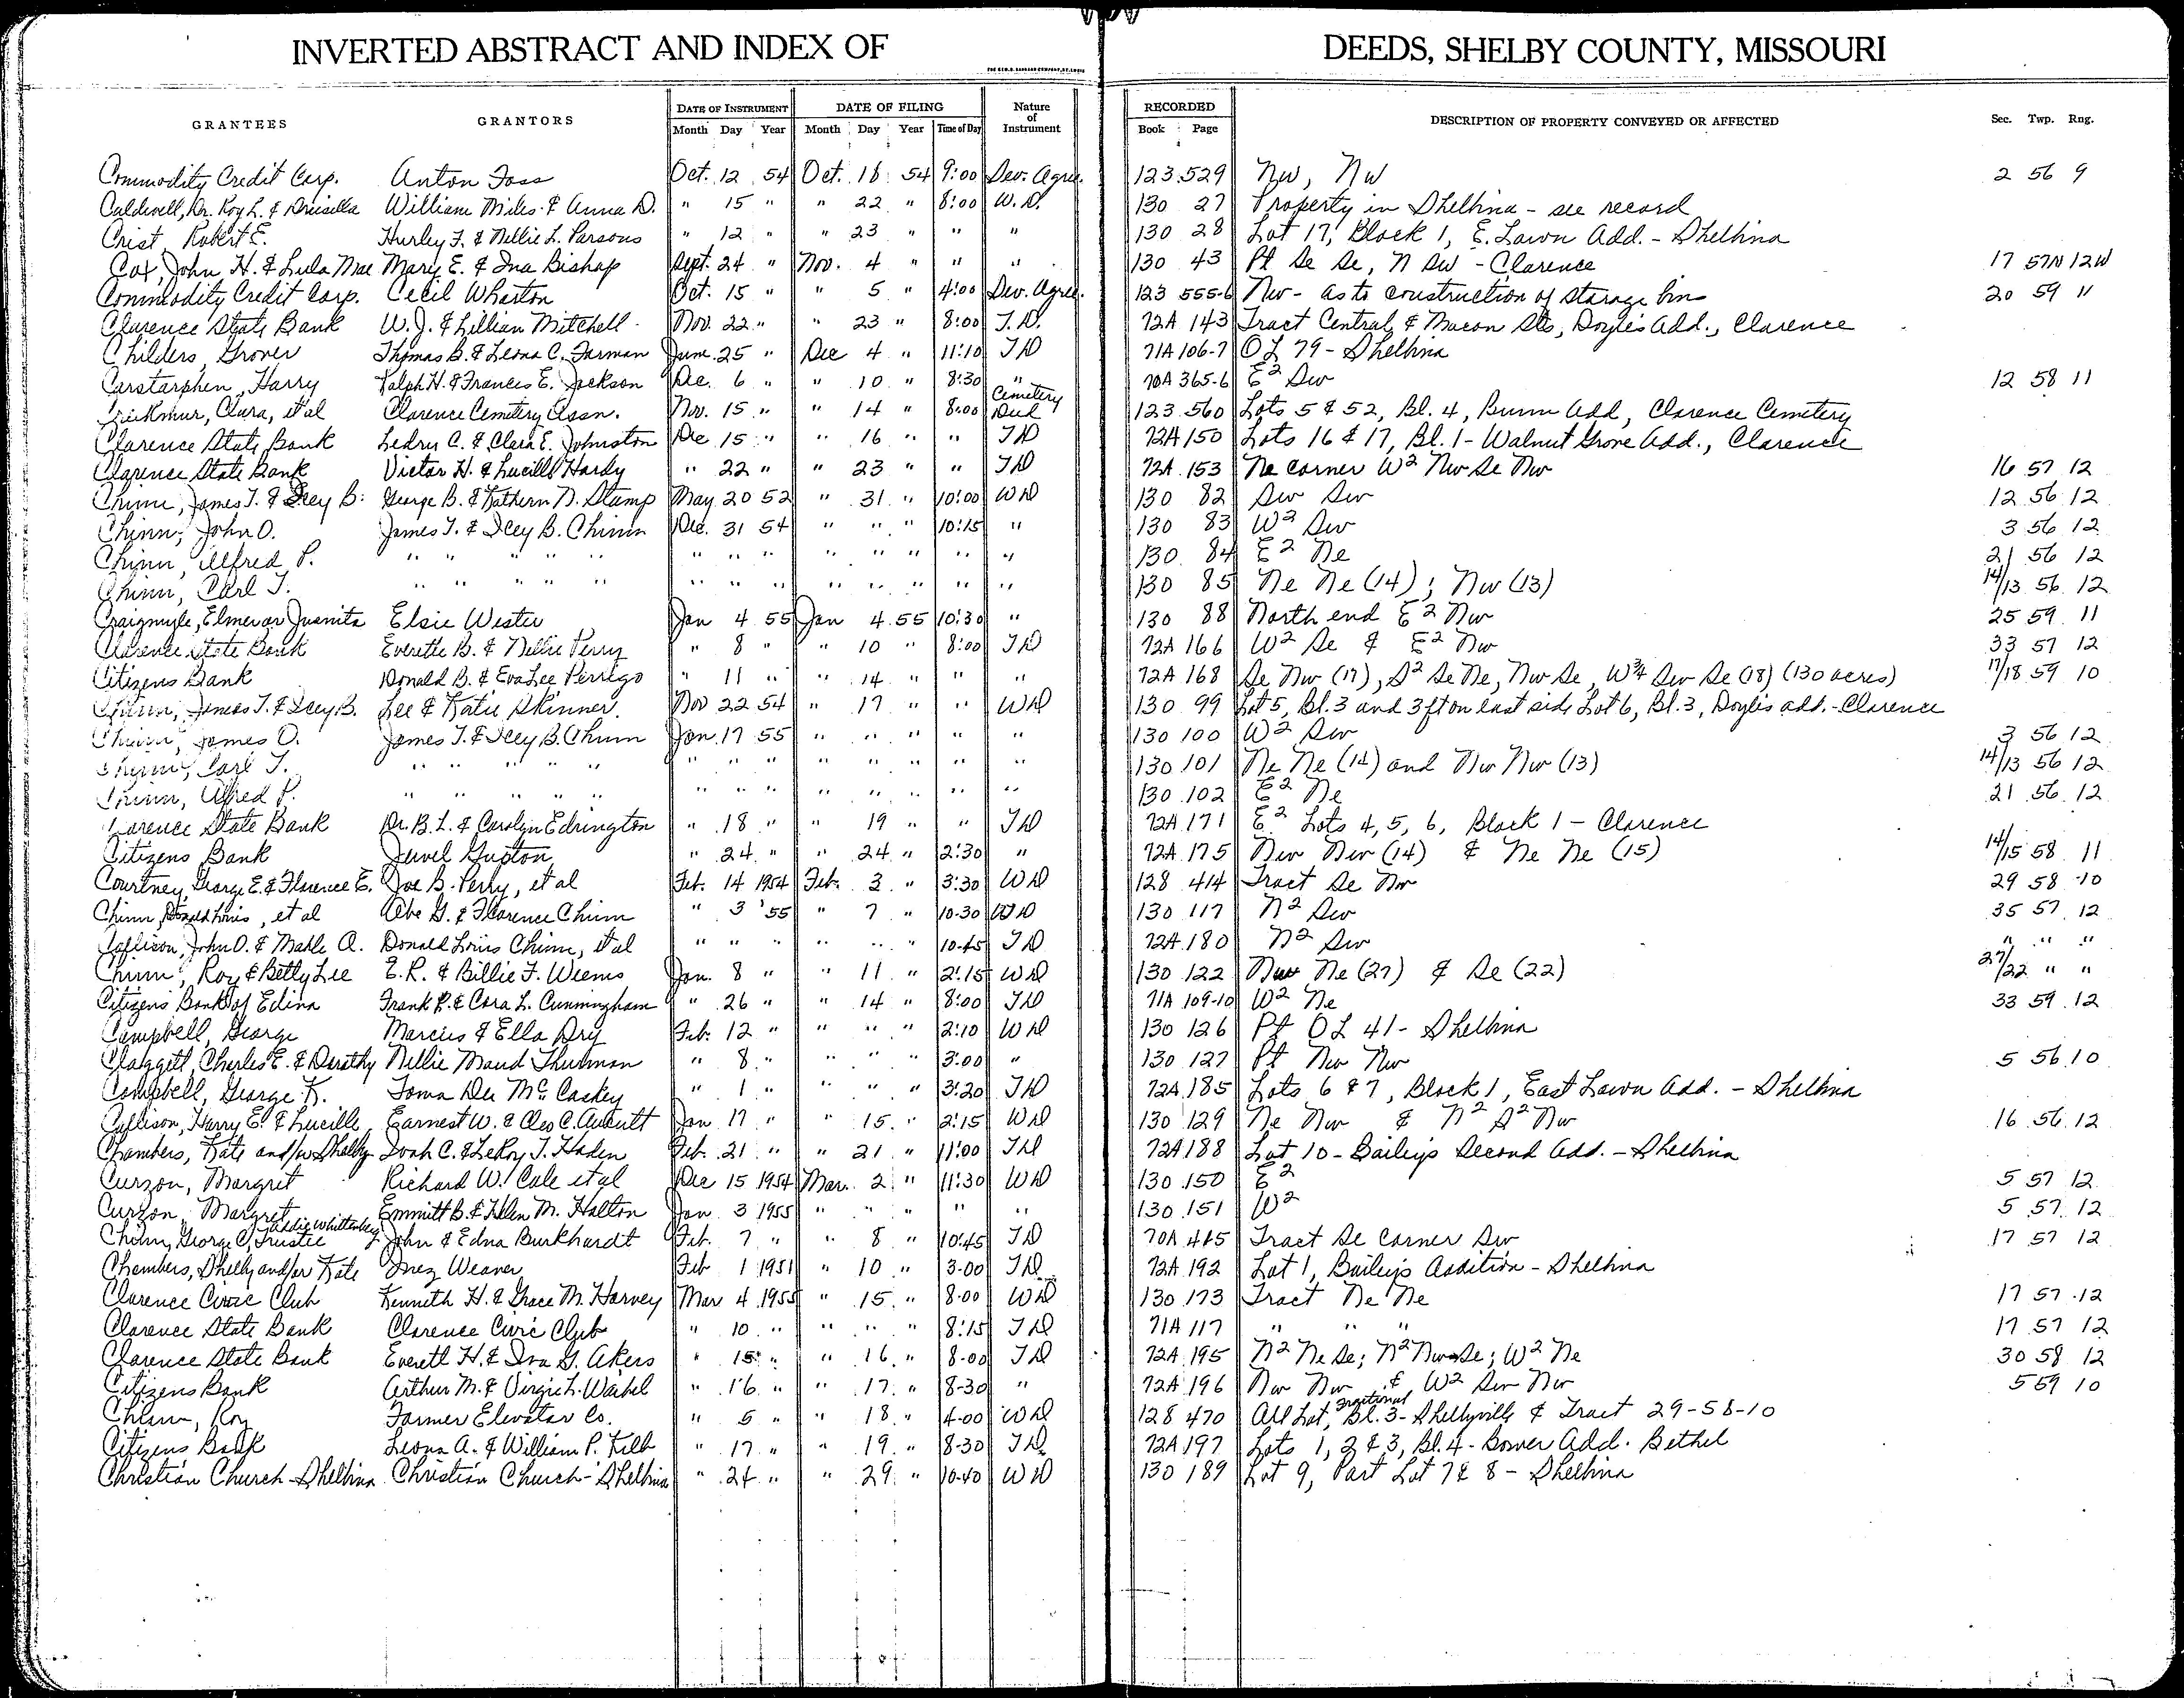 INVERTED ABSTRACT AND INDEX OF DEEDS, SHELBY COUNTY, MISSOURI
GRANTEES GRANTORS DATE OF INSTRUMENT DATE OF FILING Nature of Instrument RECORDED DESCRIPTION OF PROPERTY CONVEYED OR AFFECTED Sec. Twp. Rng.
Month Day Year Month Day Year Time of Day Book Page
Commodity Credit Corp. Anton Foss Oct. 12 54 Oct. 18 54 9:00 Dev. Agree. 123 529 Nw, Nw 2 56 9
Caldwell, Dr. Roy L. & Drusilla William Miles & Anna D. " 15 " " 22 " 8:00 W.D. 130 27 Property in Shelbina - see record
Crist, Robert E. Hurley F. & Nellie L. Parsons " 12 " " 23 " " " 130 28 Lot 17, Block 1, E. Lawn Add. - Shelbina
Cox, John H. & Lula Mae Mary E. & Ina Bishop Sept. 24 " Nov. 4 " " " 130 43 Pt Se Se, N Sw - Clarence 17 57N 12W
Commodity Credit Corp. Cecil Wharton Oct. 15 " " 5 " 4:00 Dev. Agree. 123 555-6 Nw - as to construction of storage bins 20 59 11
Clarence State Bank W. J. & Lillian Mitchell Nov. 22 " " 23 " 8:00 T.D. 72A 143 Tract Central & Macon Sts, Doyle's Add., Clarence
Childers, Grover Thomas B. & Leona C. Farman June 25 " Dec 4 " 11:10 TD 71A 106-7 OL 79 - Shelbina
Carstarphen, Harry Ralph H. & Frances E. Jackson Dec. 6 " " 10 " 8:30 " 70A 365-6 E2 Sw 12 58 11
Clara, et al Clarence Cemetery Assn. Nov. 15 " " 14 " 8:00 Cemetery Deed 123 560 Lots 5 & 52, Bl. 4, Bunn Add, Clarence Cemetery
Clarence State Bank Ledru C. & Clara E. Johnston Dec 15 " " 16 " " TD 72A 150 Lots 16 & 17, Bl. 1 - Walnut Grove Add., Clarence
Clarence State Bank Victor H. & Lucille Hardy " 22 " " 23 " " TD 72A 153 Ne corner W2 Nw Se Nw 16 57 12
Chinn, James T. & Icey B. George B. & Kathern N. Stamp May 20 52 " 31 " 10:00 WD 130 82 Sw Sw 12 56 12
Chinn, John O. James T. & Icey B. Chinn Dec. 31 54 " " " 10:15 " 130 83 W2 Sw 3 56 12
Chinn, Alfred P. " " " " " " " " " " " " " 130 84 E2 Ne 21 56 12
Chinn, Carl T. " " " " " " " " " " " " " 130 85 Ne Ne (14); Nw (13) 14/13 56 12
Craigmyle, Elmer or Juanita Elsie Wester Jan 4 55 Jan 4 55 10:30 " 130 88 North end E2 Nw 25 59 11
Clarence State Bank Everette B. & Nellie Perry " 8 " " 10 " 8:00 TD 72A 166 W2 Se & E2 Nw 33 57 12
Citizens Bank Donald B. & Eva Lee Perrigo " 11 " " 14 " " " 72A 168 Se Nw (17), S2 Se Ne, Nw Se, W3/4 Sw Se (18) (130 acres) 17/18 59 10
Chinn, James T. & Icey B. Lee & Katie Skinner. Nov 22 54 " 17 " " WD 130 99 Lot 5, Bl. 3 and 3 ft on east side Lot 6, Bl. 3, Doyle's add. - Clarence
Chinn, James O. James T. & Icey B. Chinn Jan. 17 55 " " " " " 130 100 W2 Sw 3 56 12
Chinn, Carl T. " " " " " " " " " " " " " 130 101 Ne Ne (14) and Nw Nw (13) 14/13 56 12
Chinn, Alfred P. " " " " " " " " " " " " " 130 102 E2 Ne 21 56 12
Clarence State Bank Dr. B. L. & Carolyn Edrington " 18 " " 19 " " TD 72A 171 E2 Lots 4, 5, 6, Block 1 - Clarence
Citizens Bank Jewel Gupton " 24 " " 24 " 2:30 " 72A 175 Nw Nw (14) & Ne Ne (15) 14/15 58 11
Courtney, George E. & Florence E. Joe B. Perry, et al Feb. 14 1954 Feb. 3 " 3:30 WD 128 414 Tract Se Nw 29 58 10
Chinn, Donald Louis, et al Abe G. & Florence Chinn " 3 '55 " 7 " 10-30 WD 130 117 N2 Sw 35 57 12
John O. & Mable A. Donald Louis Chinn, et al " " " " " " 10-45 TD 72A 180 N2 Sw " " "
Chinn, Roy & Betty Lee E. R. & Billie F. Weems Jan. 8 " " 11 " 2:15 WD 130 122 Nw Ne (27) & Se (22) 27/22 " "
Citizens Bank of Edina Frank P. & Cora L. Cunningham " 26 " " 14 " 8:00 TD 71A 109-10 W2 Ne 33 59 12
Campbell, George Marcus & Ella Dry Feb. 12 " " " " 2:10 WD 130 126 Pt OL 41 - Shelbina
Claggett, Charles E. & Dorothy Nellie Maud Thurman " 8 " " " " 3:00 " 130 127 Pt Nw Nw 5 56 10
Campbell, George K. Toma Dee McCaskey " 1 " " " " 3:20 TD 72A 185 Lots 6 & 7, Block 1, East Lawn Add. - Shelbina
Collison, Harry E. & Lucille Earnest W. & Cleo C. Aubuilt Jan 17 " " 15 " 2:15 WD 130 129 Ne Nw & N2 S2 Nw 16 56 12
Chambers, Kate and/or Shelby C. & LeRoy T. Haden Feb. 21 " " 21 " 11:00 TD 72A 188 Lot 10 - Bailey's Second Add. - Shelbina
Curzon, Margret Richard W. Cale et al Dec 15 1954 Mar. 2 " 11:30 WD 130 150 E2 5 57 12
Curzon, Margret Emmitt B. & Helen M. Halton Jan 3 1955 " " " " " 130 151 W2 5 57 12
Chinn, George C, Trustee Addie Whittenberg John & Edna Burkhardt Feb. 7 " " 8 " 10:45 TD 70A 415 Tract Se Corner Sw 17 57 12
Chambers, Shelby and/or Kate Inez Weaver Feb 1 1951 " 10 " 3-00 TD 72A 192 Lot 1, Bailey's Addition - Shelbina
Clarence Civic Club Kenneth H. & Grace M. Harvey Mar 4 1955 " 15 " 8-00 WD 130 173 Tract Ne Ne 17 57 12
Clarence State Bank Clarence Civic Club " 10 " " " " 8:15 TD 71A 117 " " " 17 57 12
Clarence State Bank Everett H. & Iva G. Akers " 15 " " 16 " 8-00 TD 72A 195 N2 Ne Se; N2 Nw Se; W2 Ne 30 58 12
Citizens Bank Arthur M. & Virgie L. Waibel " 16 " " 17 " 8-30 " 72A 196 Nw Nw & W2 Sw Nw 5 59 10
Chinn, Roy Farmer Elevator Co. " 5 " " 18 " 4-00 WD 128 470 All Lot, fractional Bl. 3 - Shelbyville & Tract 29-58-10
Citizens Bank Leona A. & William P. Kilb " 17 " " 19 " 8-30 TD 72A 197 Lots 1, 2 & 3, Bl. 4 - Bower Add. Bethel
Christian Church - Shelbina Christian Church - Shelbina " 24 " " 29 " 10-40 WD 130 189 Lot 9, Part Lot 7 & 8 - Shelbina